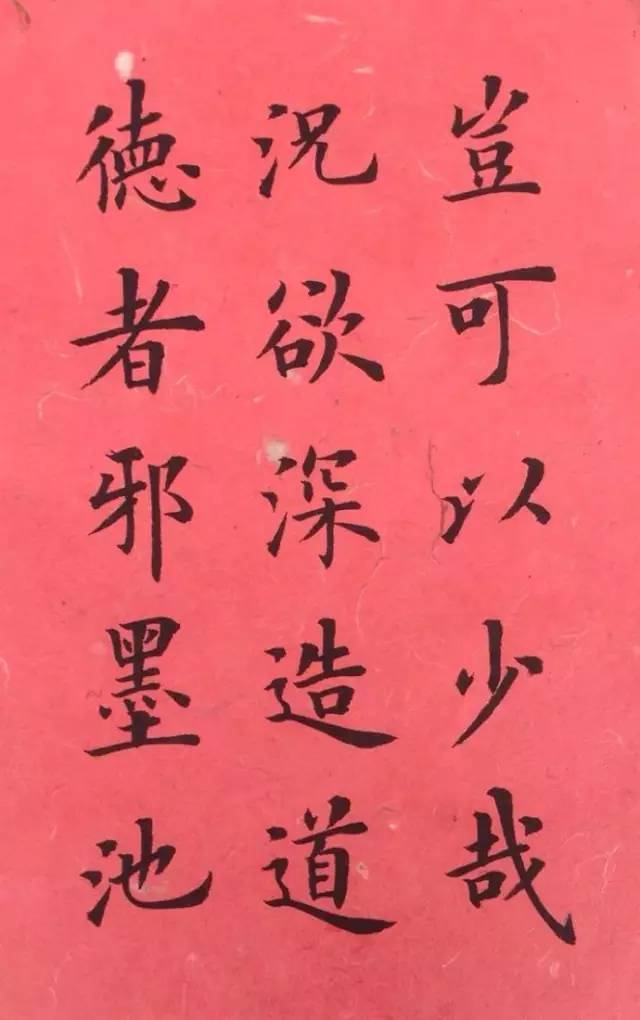 豈可以少哉
况欲深造道
德者邪墨池